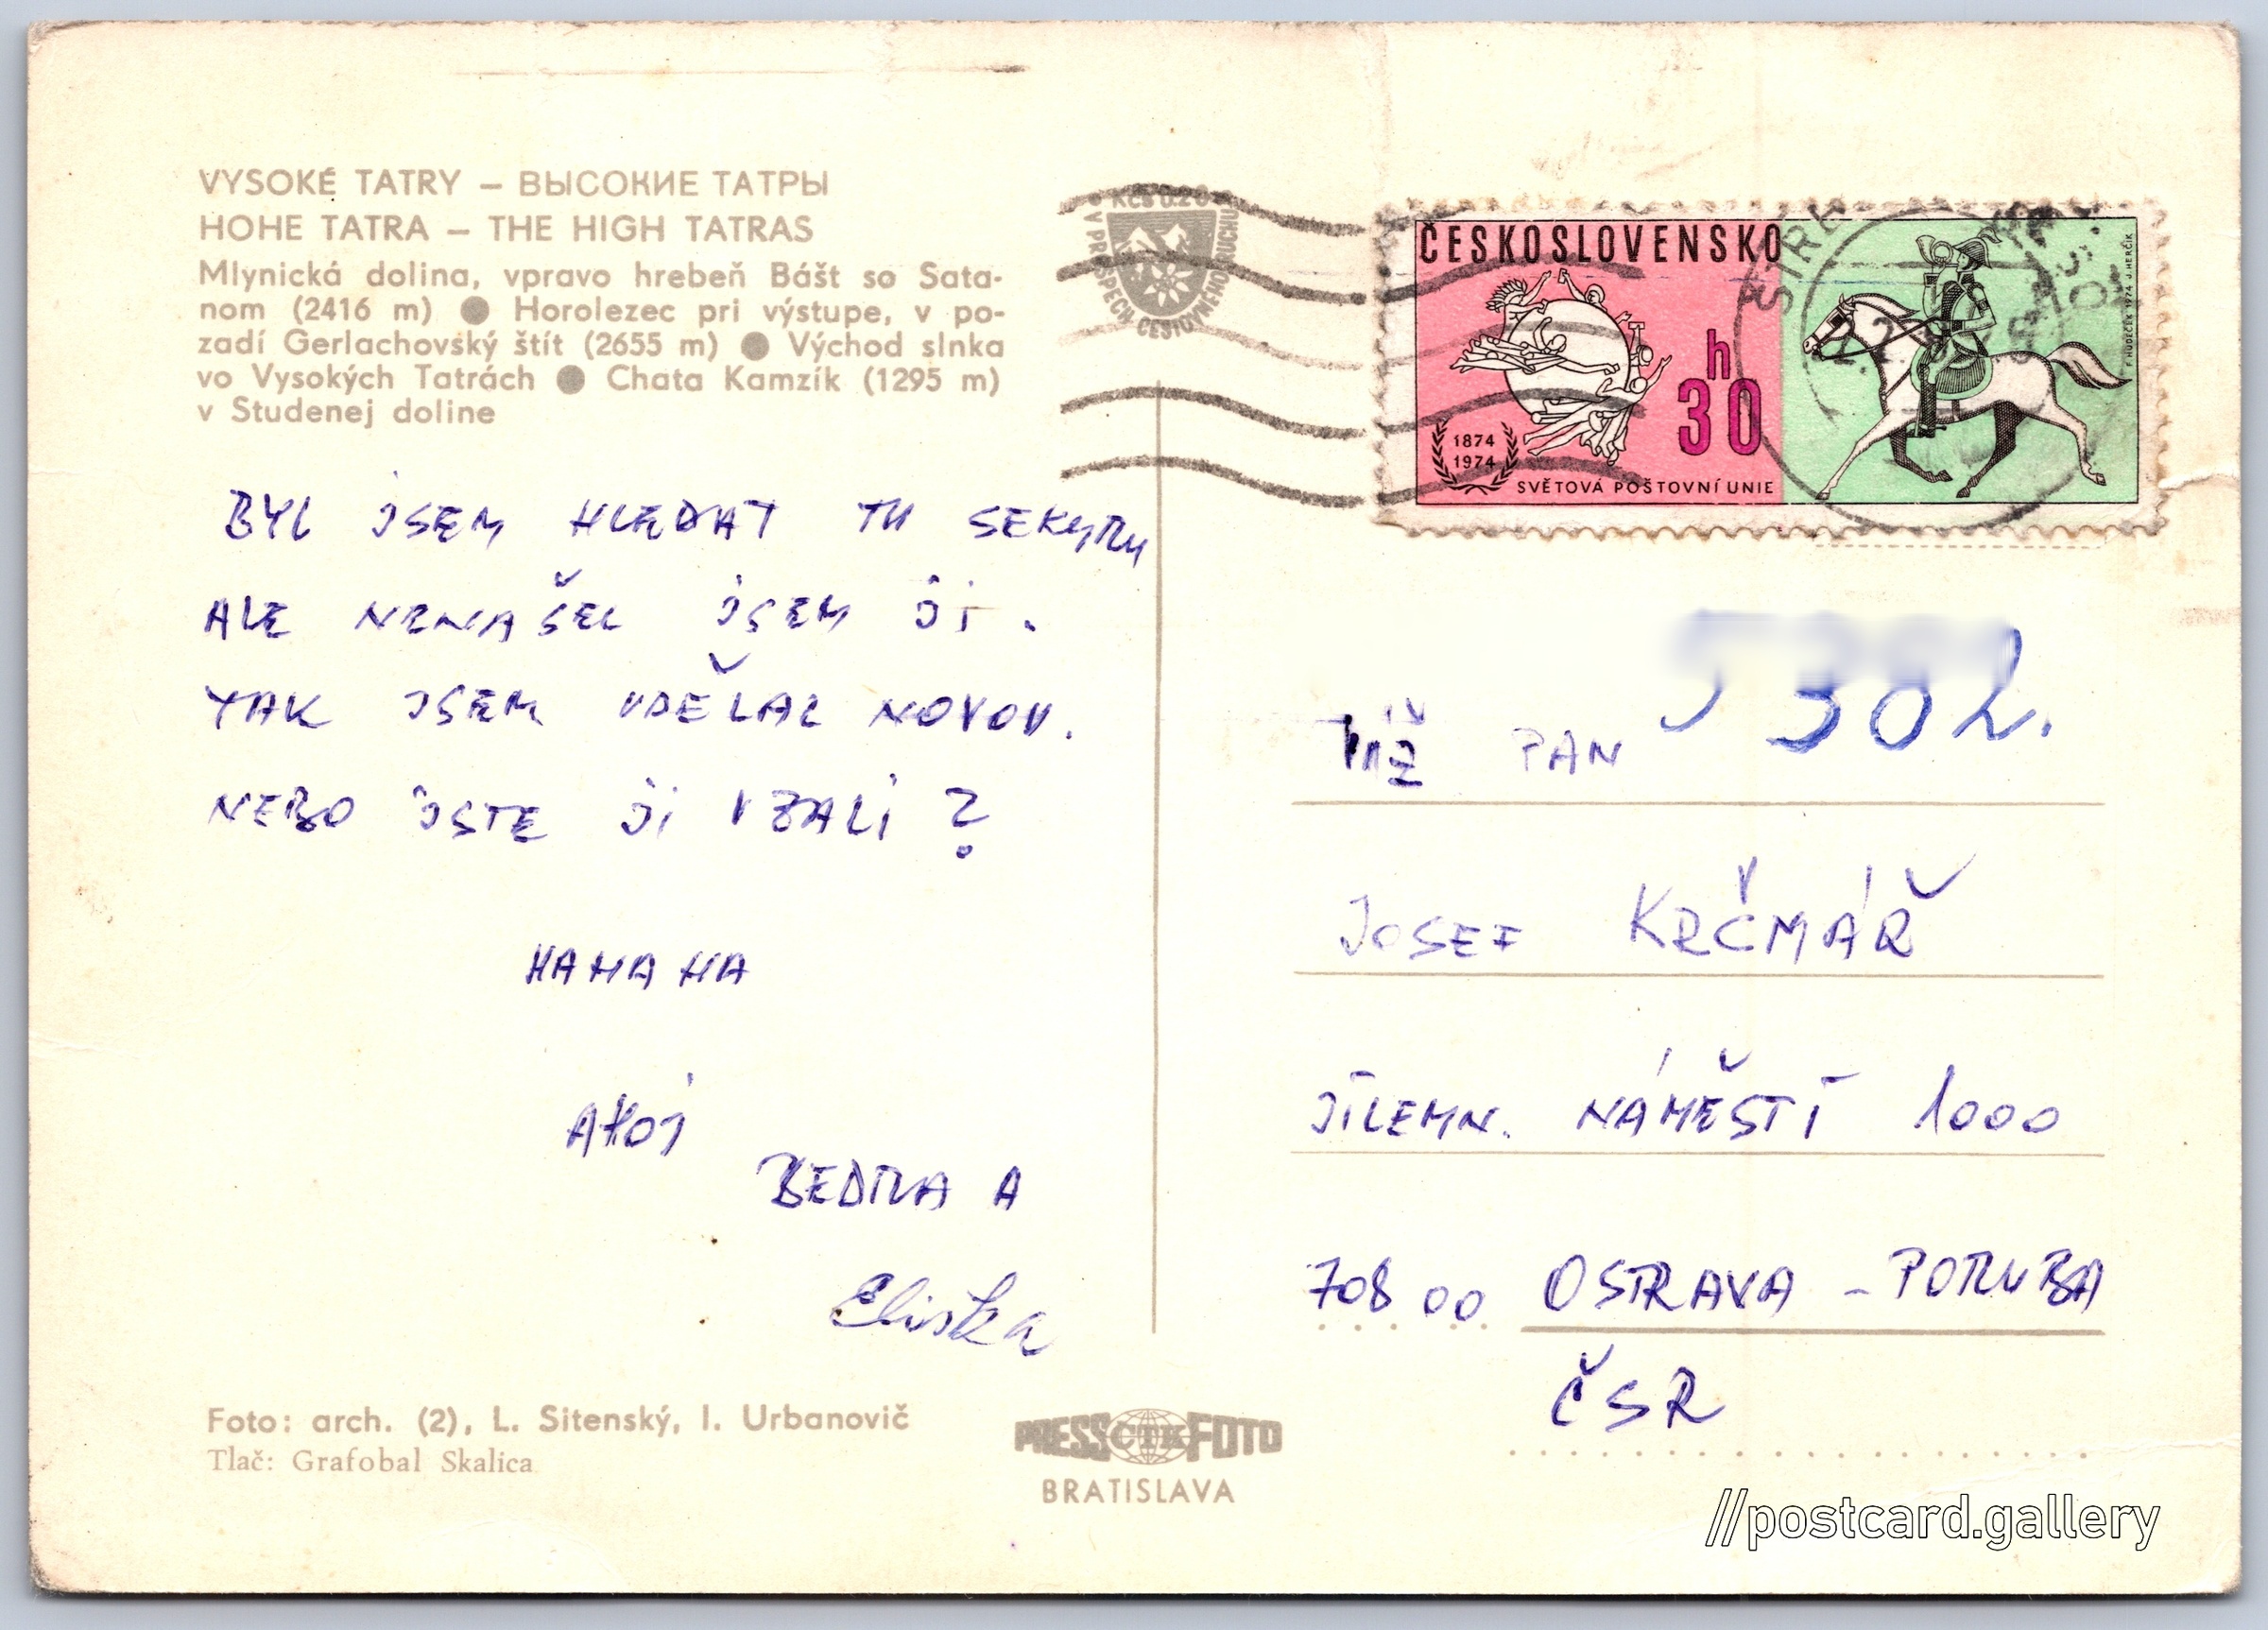 VYSOKÉ TATRY – ВЫСОКИЕ ТАТРЫ
HOHE TATRA – THE HIGH TATRAS
Mlynická dolina, vpravo hrebeň Bášt so Sata-
nom (2416 m) ● Horolezec pri výstupe, v po-
zadí Gerlachovský štít (2655 m) ● Východ slnka
vo Vysokých Tatrách ● Chata Kamzík (1295 m)
v Studenej doline
BYL JSEM HLEDAT TU SEKYRU
ALE NENAŠEL JSEM JI.
TAK JSEM UDĚLAL NOVOU.
NEBO JSTE JI VZALI?
HAHAHA
AHOJ
BEDRA A
Eliška
Foto: arch. (2), L. Sitenský, I. Urbanovič
Tlač: Grafobal Skalica
PRESS ČTK FOTO
BRATISLAVA
Kčs 0.20
V PROSPECH CESTOVNÉHO RUCHU
ČESKOSLOVENSKO
30 h
1874
1974
SVĚTOVÁ POŠTOVNÍ UNIE
F. HUDEČEK 1974 J. HERČÍK
PAN
JOSEF KRČMÁŘ
JILEMN. NÁMĚSTÍ 1000
708 00 OSTRAVA – PORUBA
ČSR
//postcard.gallery